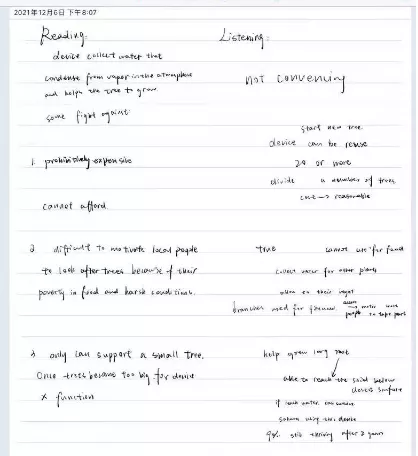 2021年12月6日 下午8:07
Reading:
Listening:
device collect water that
condense from vapor in the atmosphere
and helps the tree to grow
not convening
some fight against:
start new tree
device can be reuse
1. prohibitively expensive
20 or more
divide a number of trees
cost → reasonable
cannot afford.
2 difficult to motivate local people
true
cannot use for food
to look after trees because of their
collect water for other plants
poverty in food and harsh conditions.
branches used for
people to
3 only can support a small tree.
help grow long root
Once trees become too big for device
able to reach the soil below
desert surface
x function
this device
still thriving after 2 years